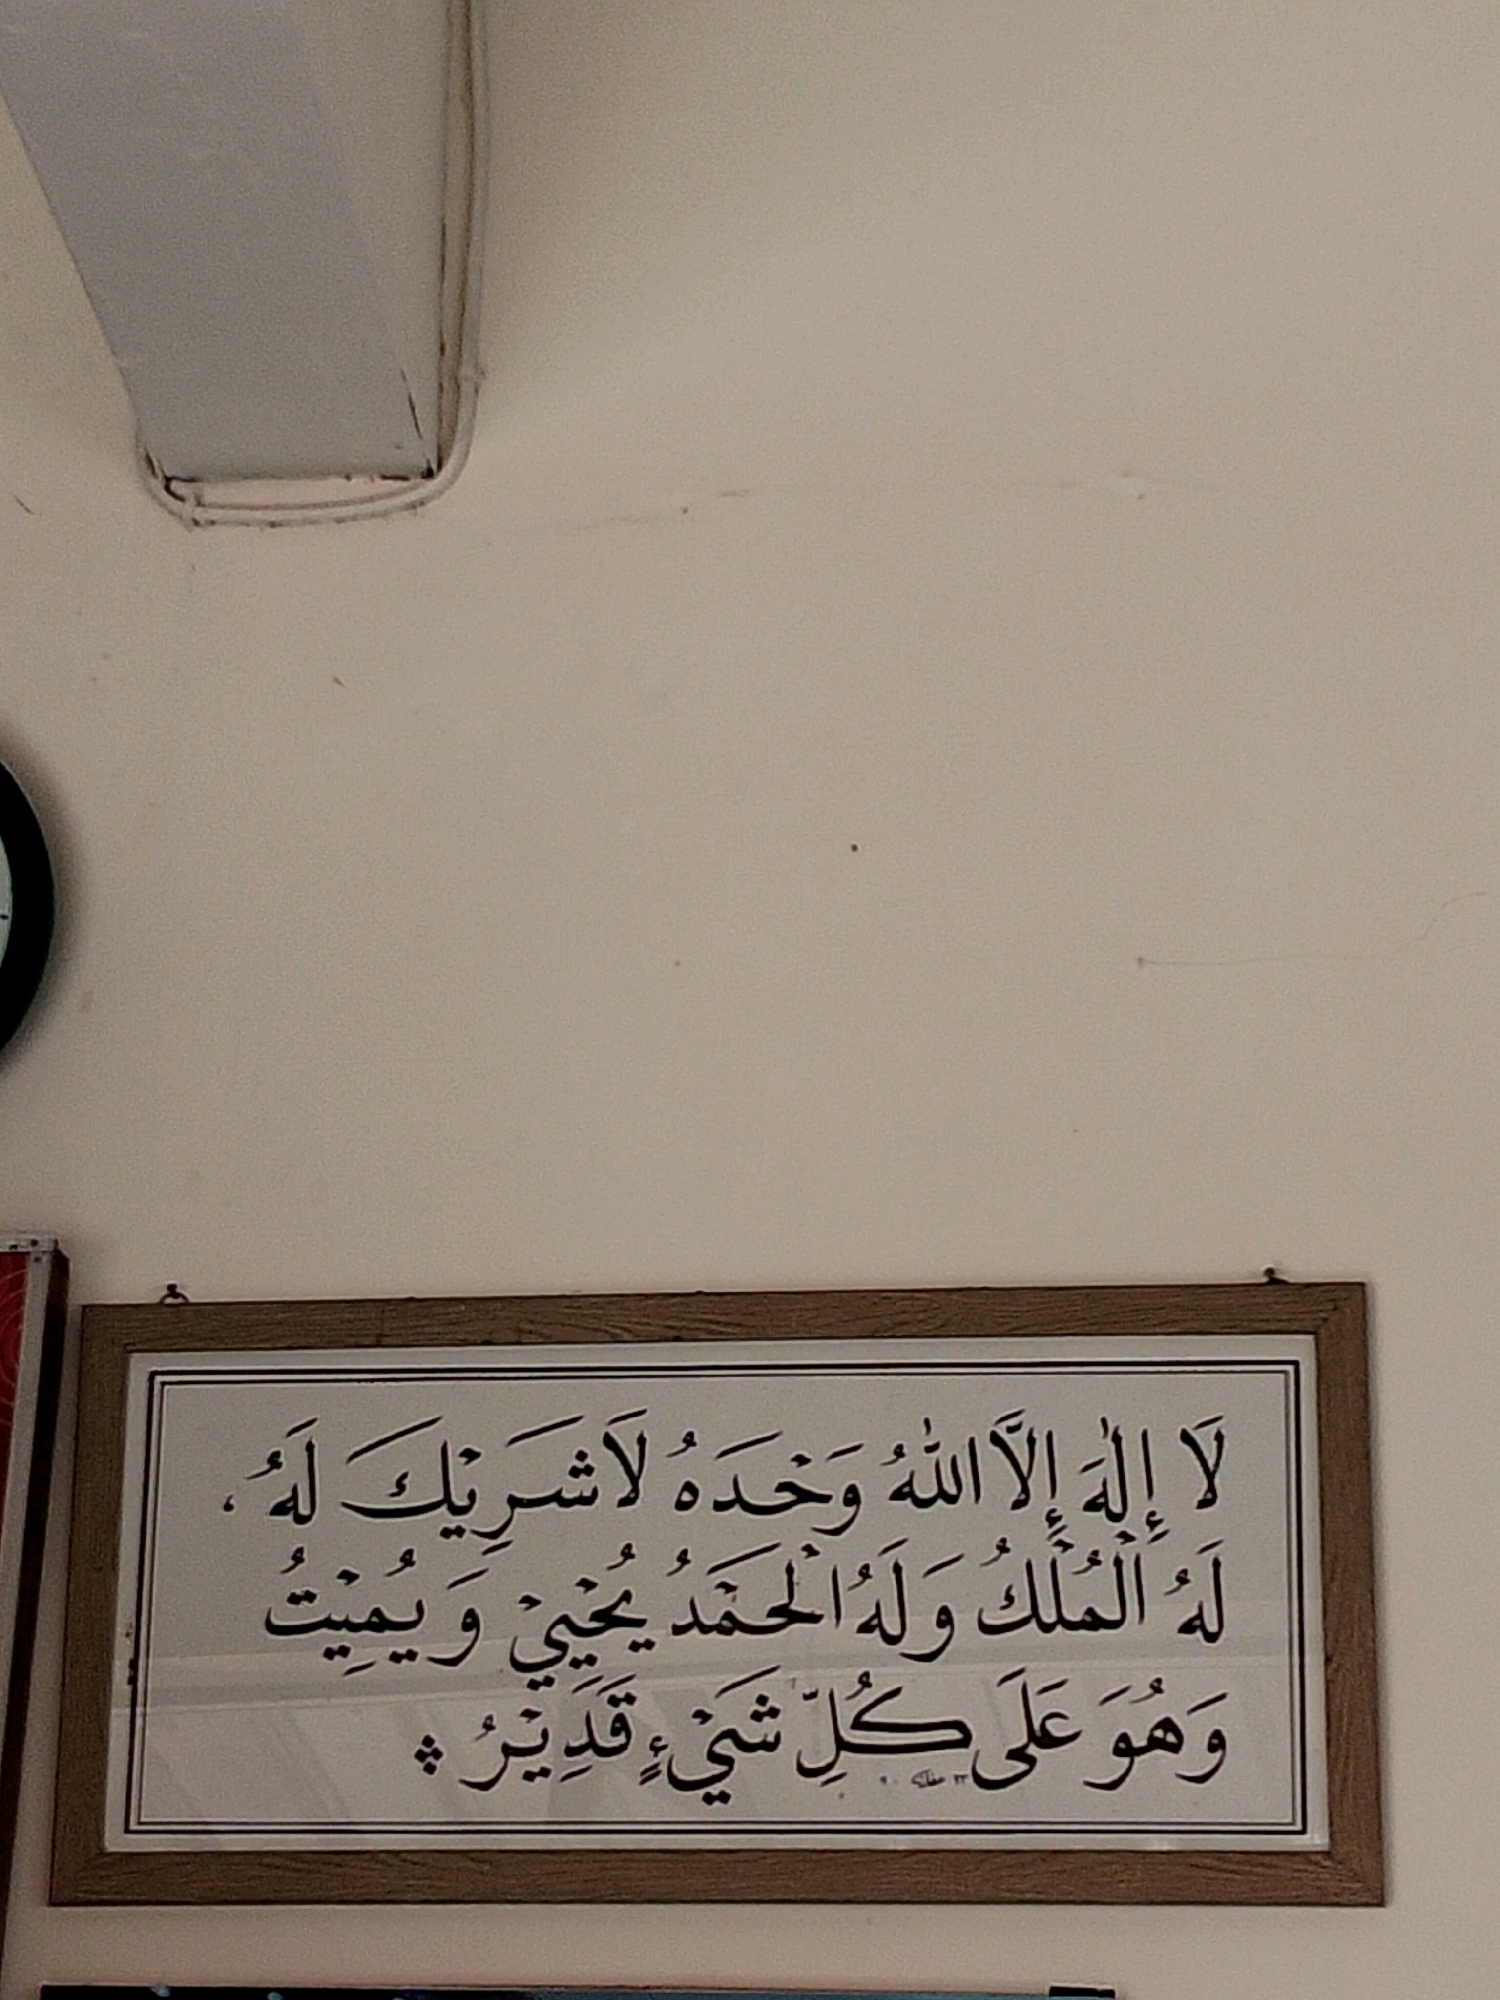 لَا إِلٰهَ إِلَّا اللهُ وَحْدَهُ لَا شَرِيْكَ لَهُ ،
لَهُ الْمُلْكُ وَ لَهُ الْحَمْدُ يُحْيِيْ وَ يُمِيْتُ
وَهُوَ عَلَى كُلِّ شَيْءٍ قَدِيْرُ